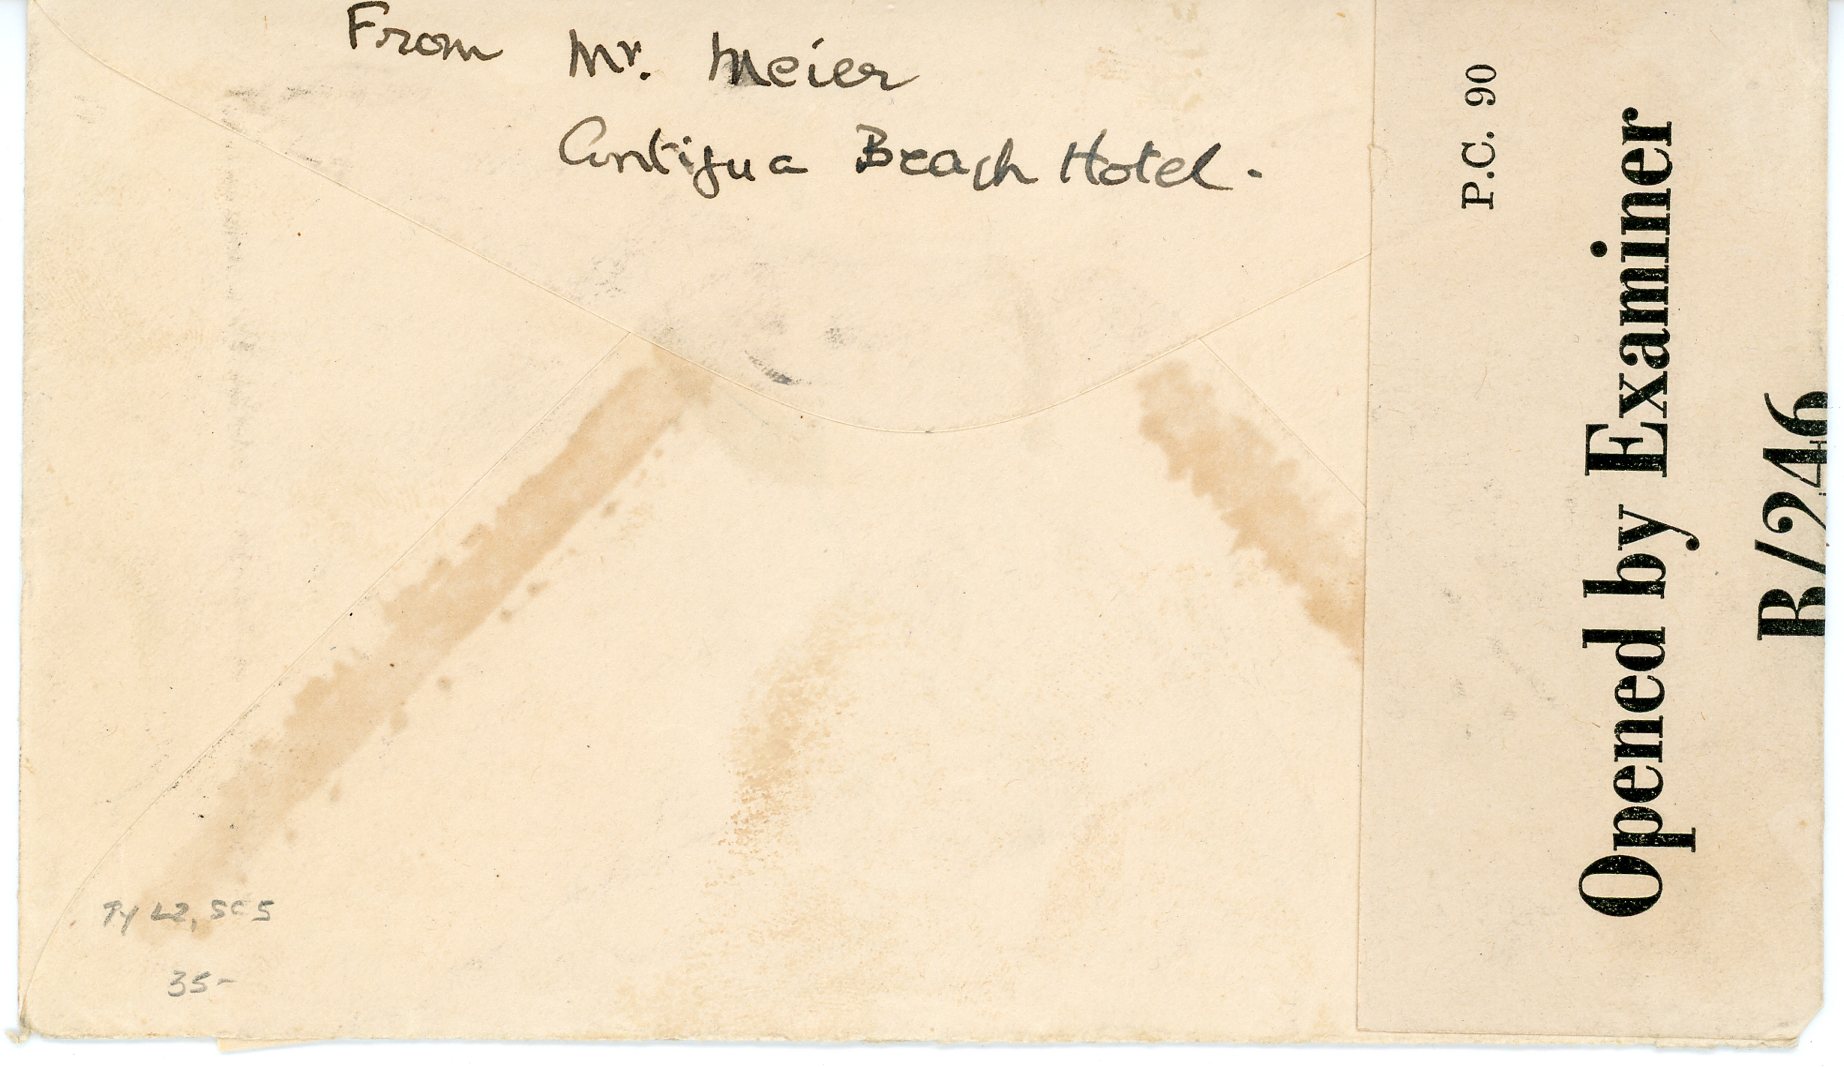 From Mr. Meier
Antigua Beach Hotel.
P.C. 90
Opened by Examiner
B/246
Ty L2, SC 5
35-